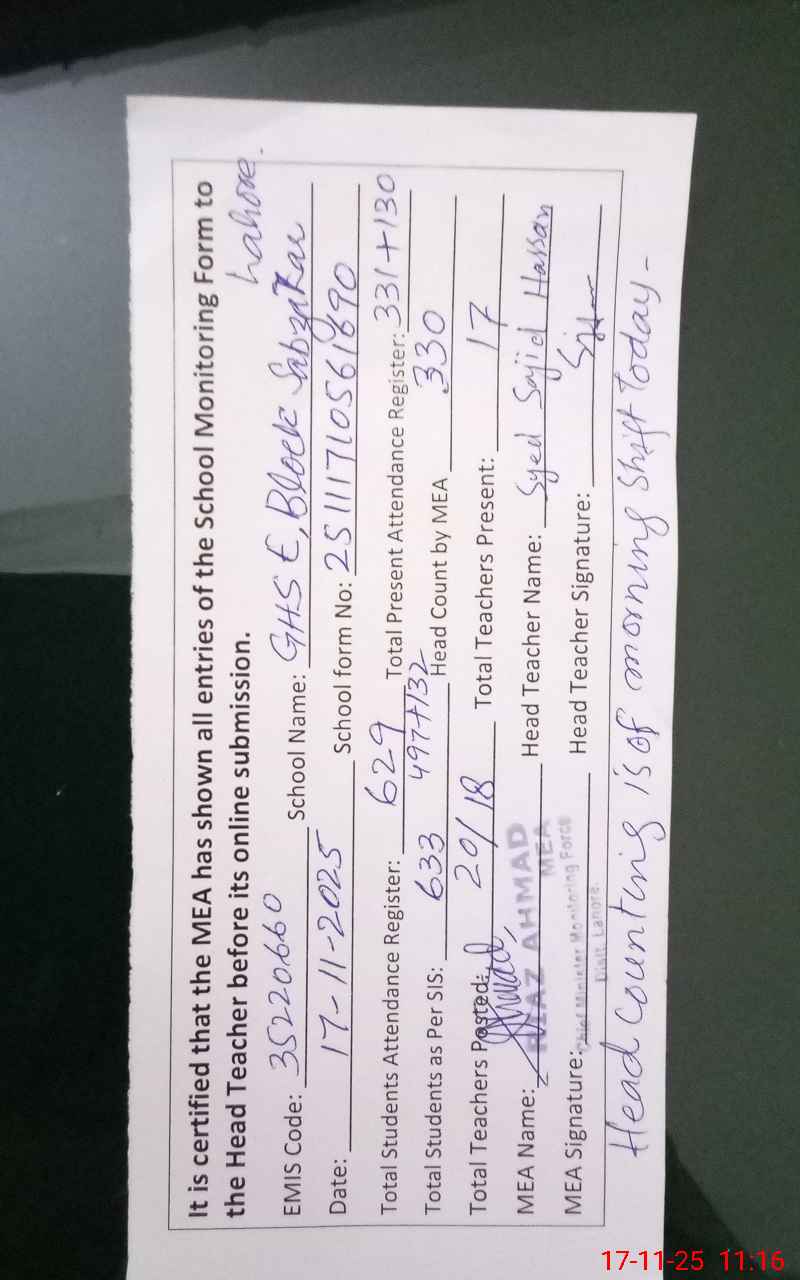 It is certified that the MEA has shown all entries of the School Monitoring Form to
the Head Teacher before its online submission.
Lahore.
EMIS Code: 35220660 School Name: GHS E, Block Sabzazar
Date: 17-11-2025 School form No: 25111710561690
Total Students Attendance Register: 629 Total Present Attendance Register: 331+130
497+132
Total Students as Per SIS: 633 Head Count by MEA 330
Total Teachers Posted: 20/18 Total Teachers Present: 17
MEA Name: RIAZ AHMAD Head Teacher Name: Syed Sajid Hassan
MEA
MEA Signature: Chief Minister Monitoring Force Head Teacher Signature:
Distt. Lahore.
Head counting is of morning shift today.
17-11-25 11:16